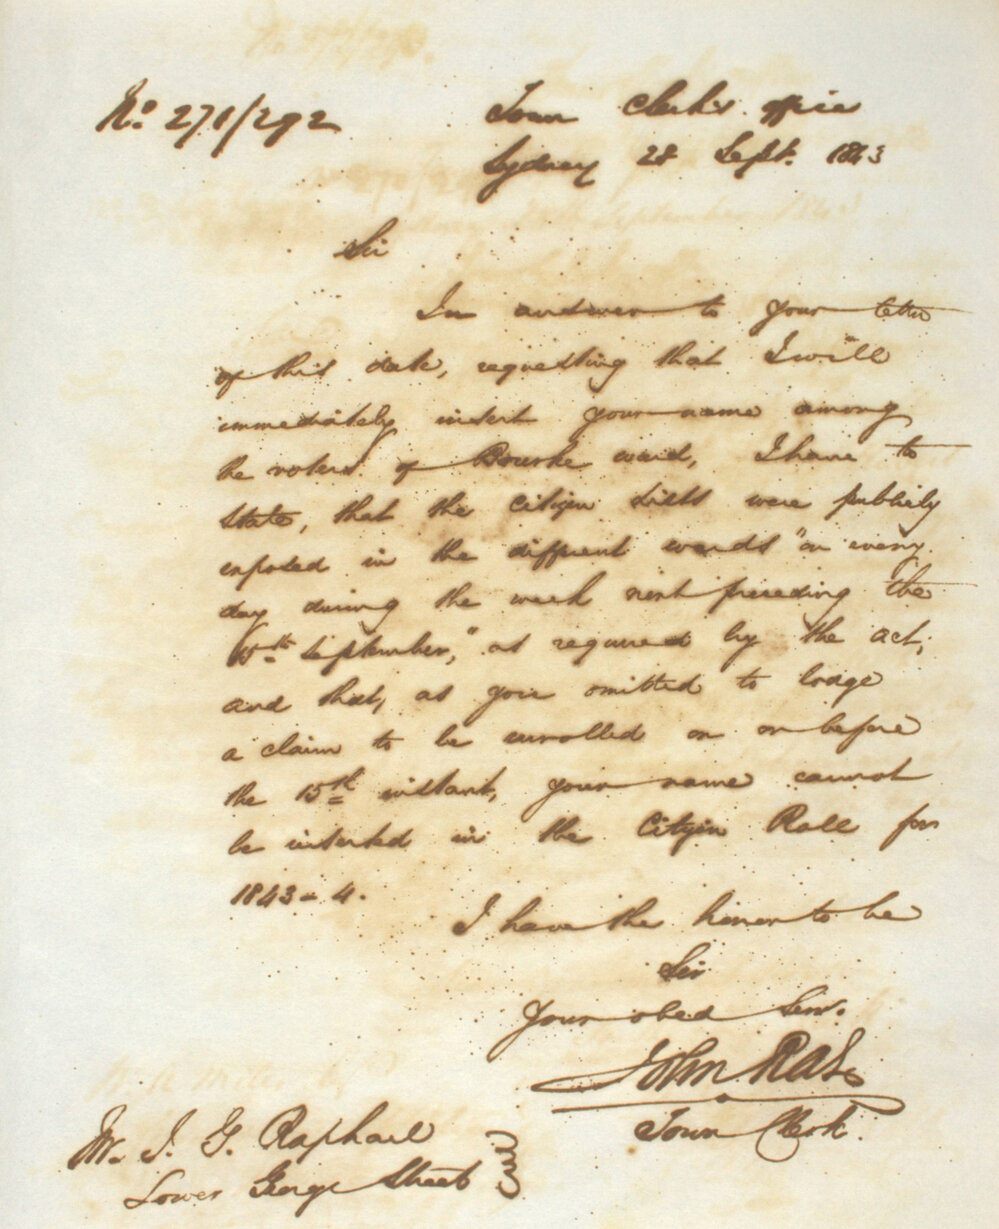 No. 271/292
Town Clerk's office
Sydney 28 Sept. 1843
Sir
In answer to your letter
of this date, requesting that I will
immediately insert your name among
the voters of Bourke ward, I have to
state, that the citizen lists were publicly
exposed in the different wards "on every
day during the week next preceding the
15th September," as required by the act;
and that, as you omitted to lodge
a claim to be enrolled on or before
the 15th instant, your name cannot
be inserted in the Citizen Roll for
1843-4.
I have the honor to be
Sir
Your obed Serv.
John Rae
Town Clerk.
Mr. J. G. Raphael
Lower George Street